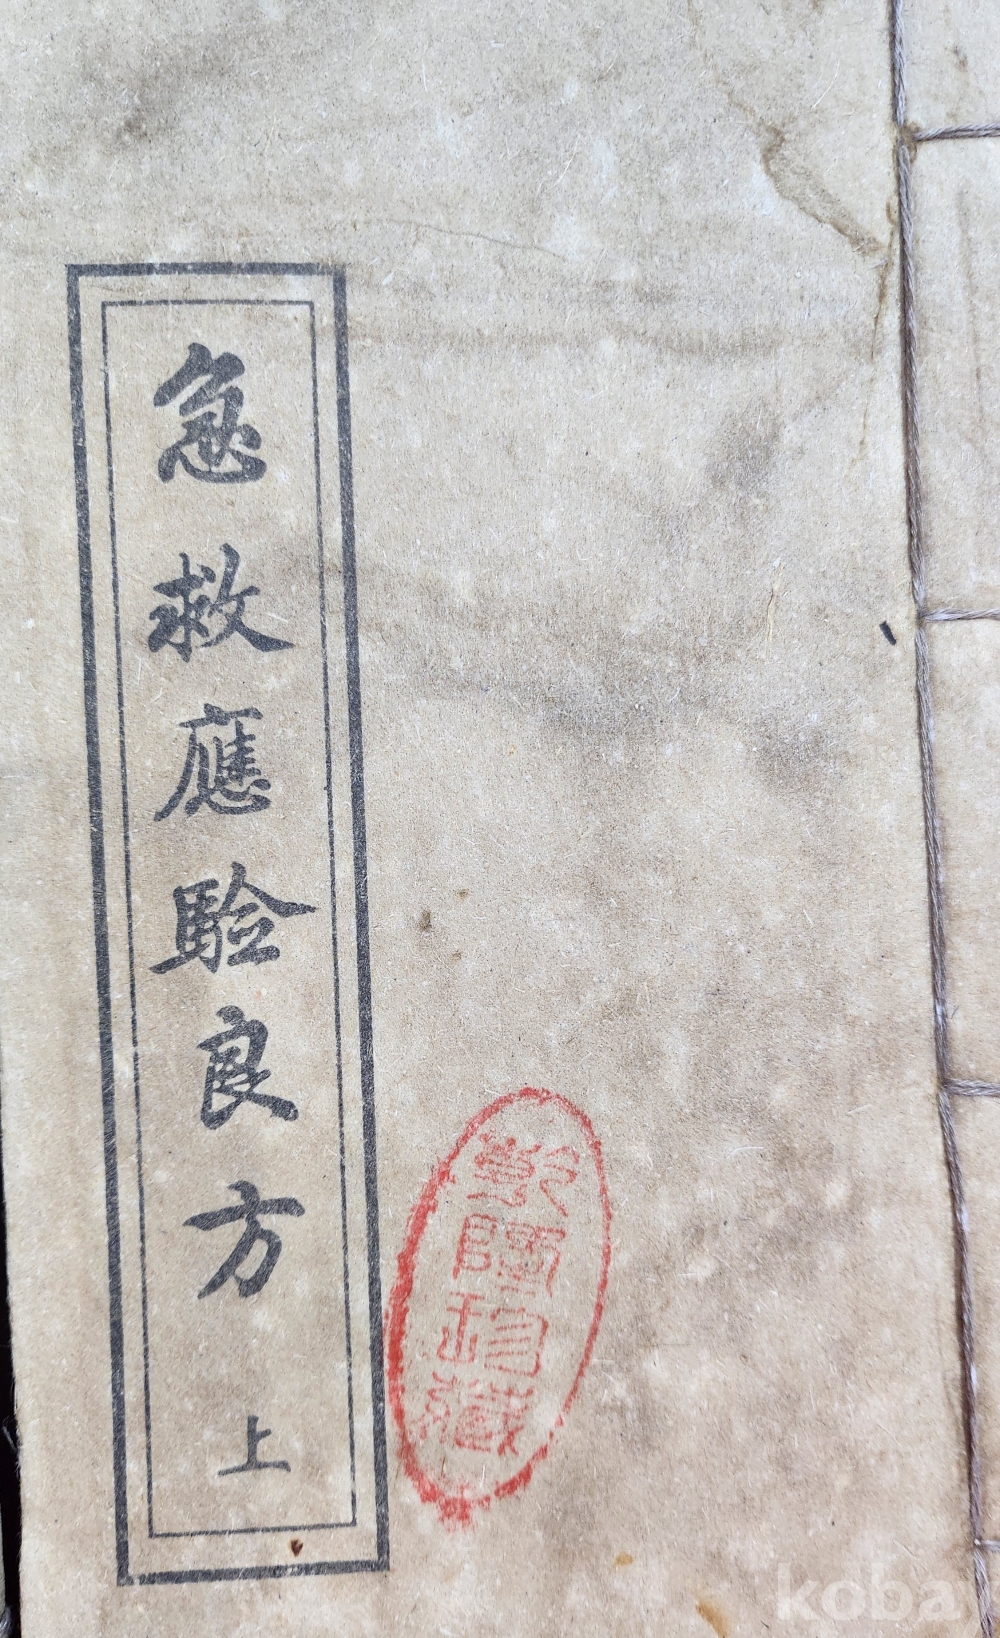 急救應驗良方 上
koba